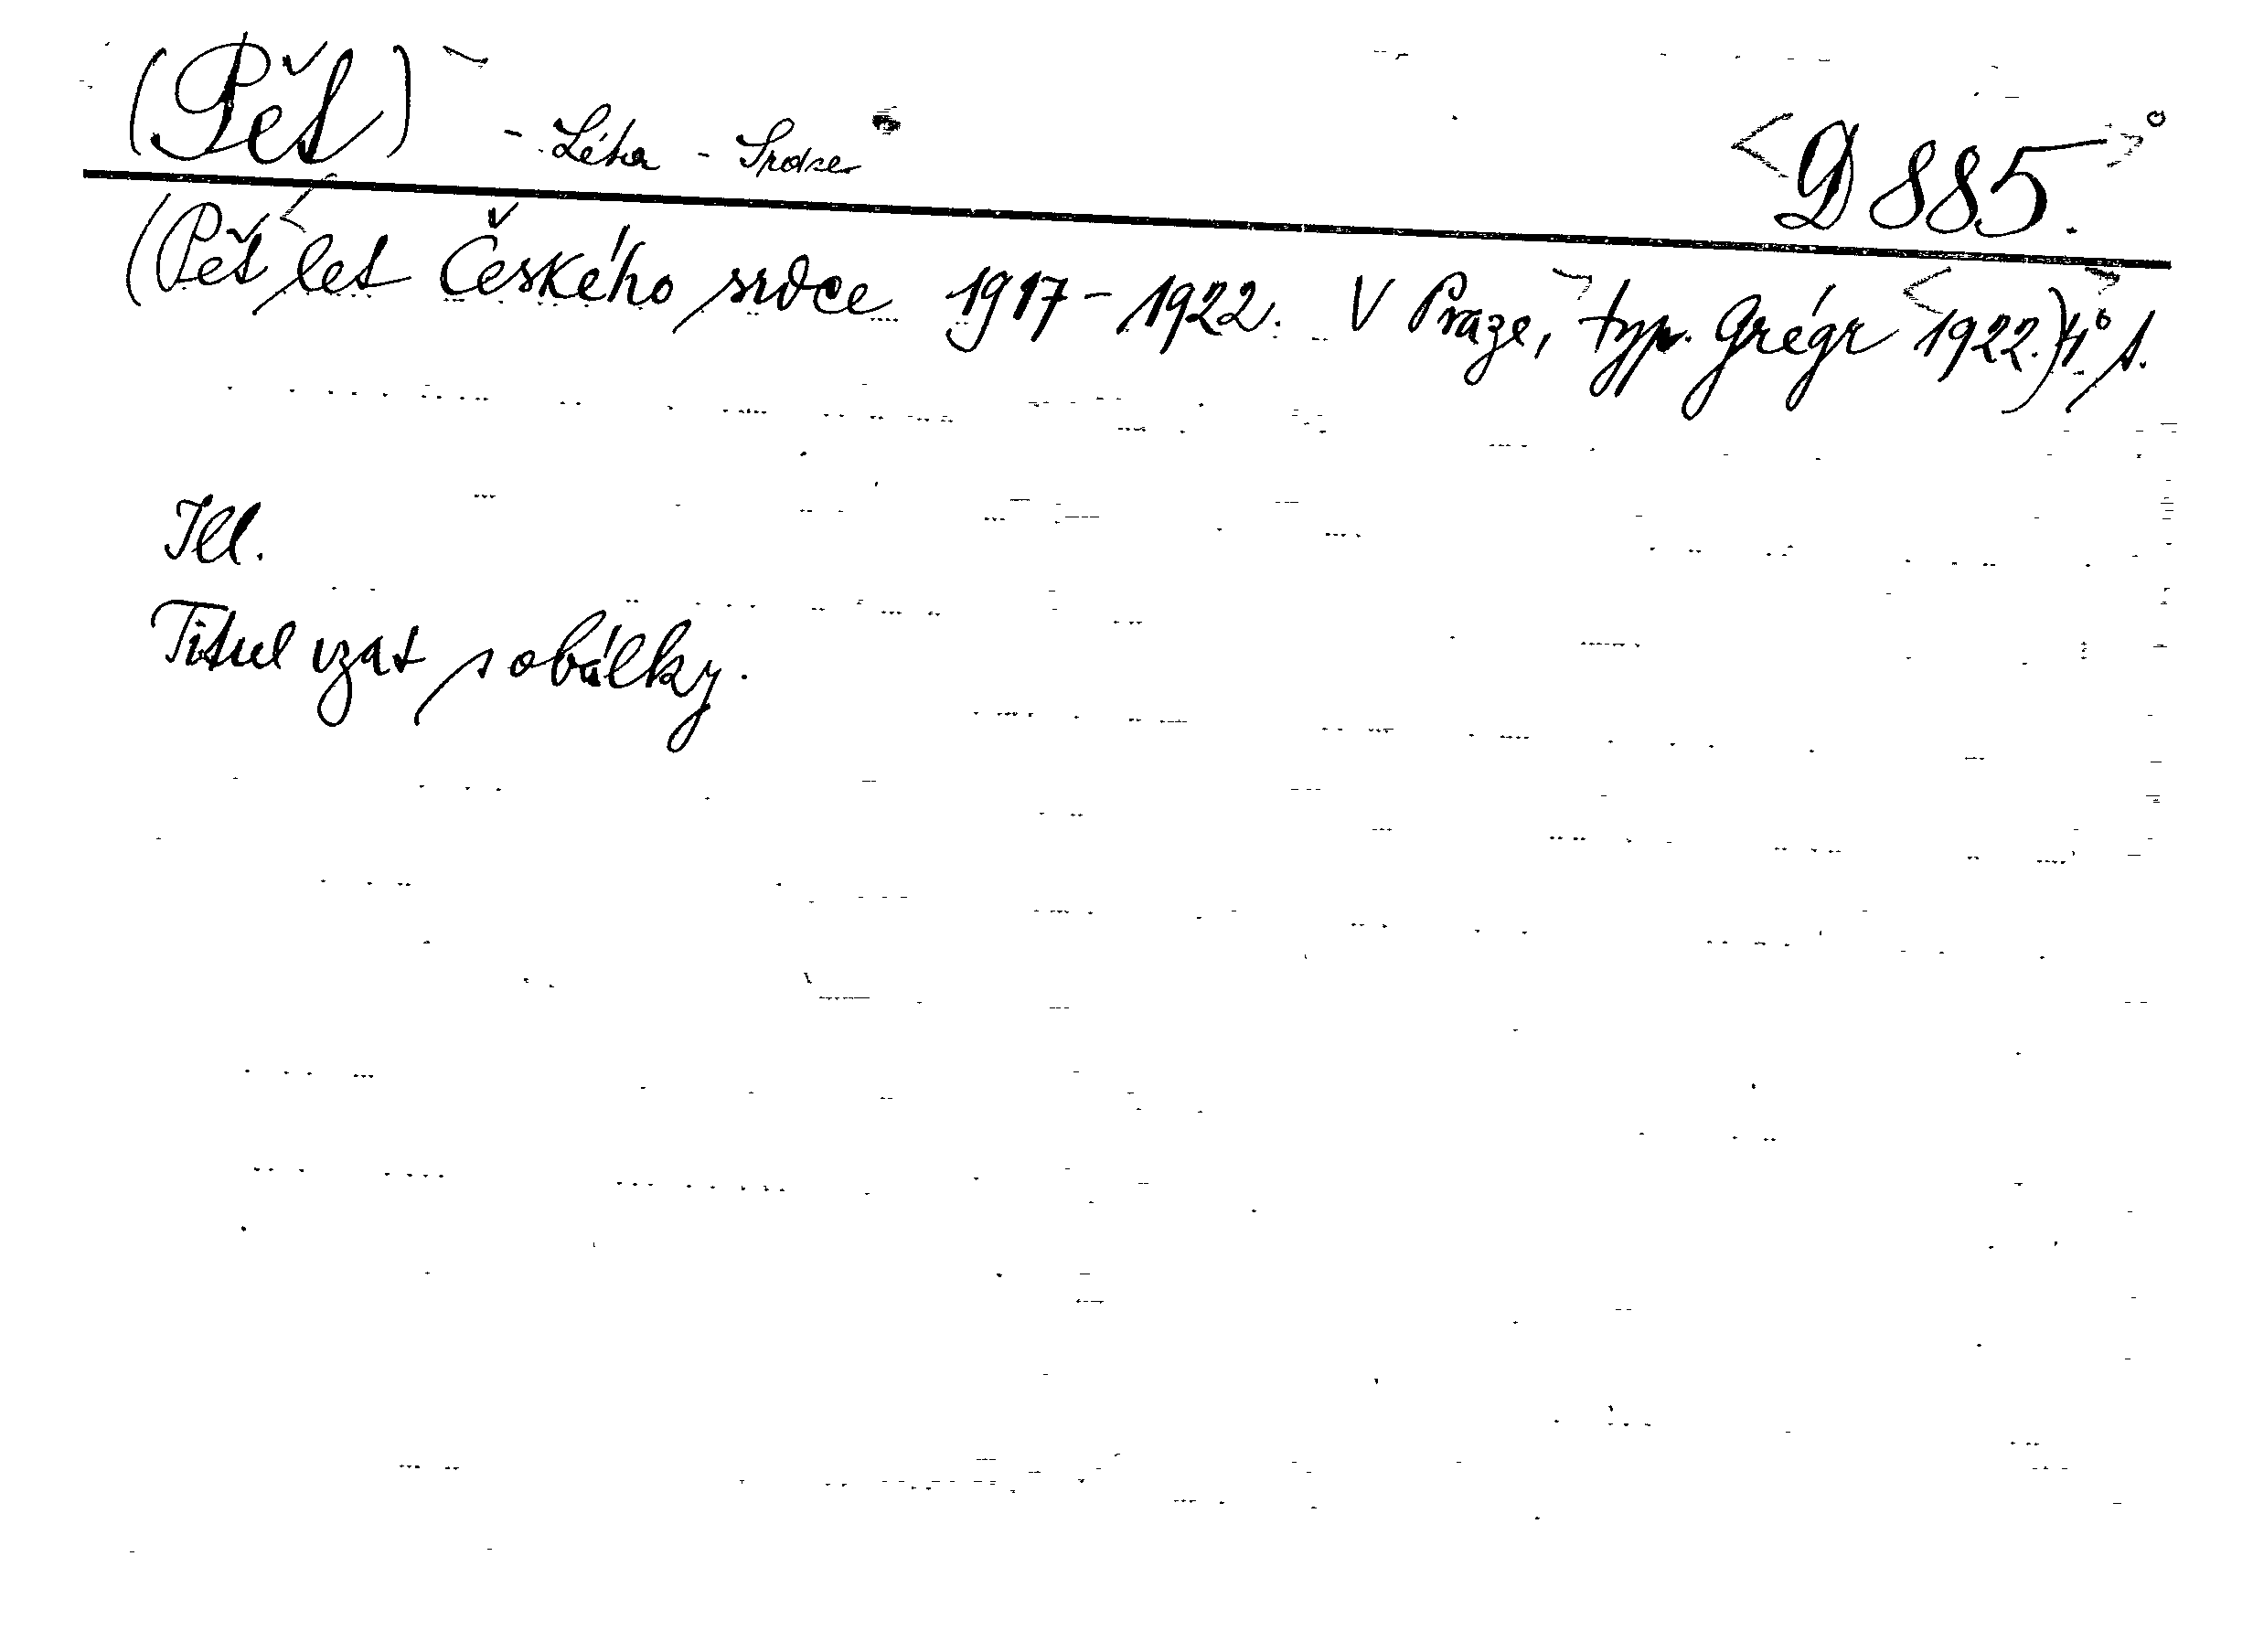 (Pět) - Léta - Srdce <D 885.>°
(Pět let Českého srdce 1917-1922. V Praze, typ. Grégr 1922.) 4° s.
Ill.
Titul vzat s obálky.